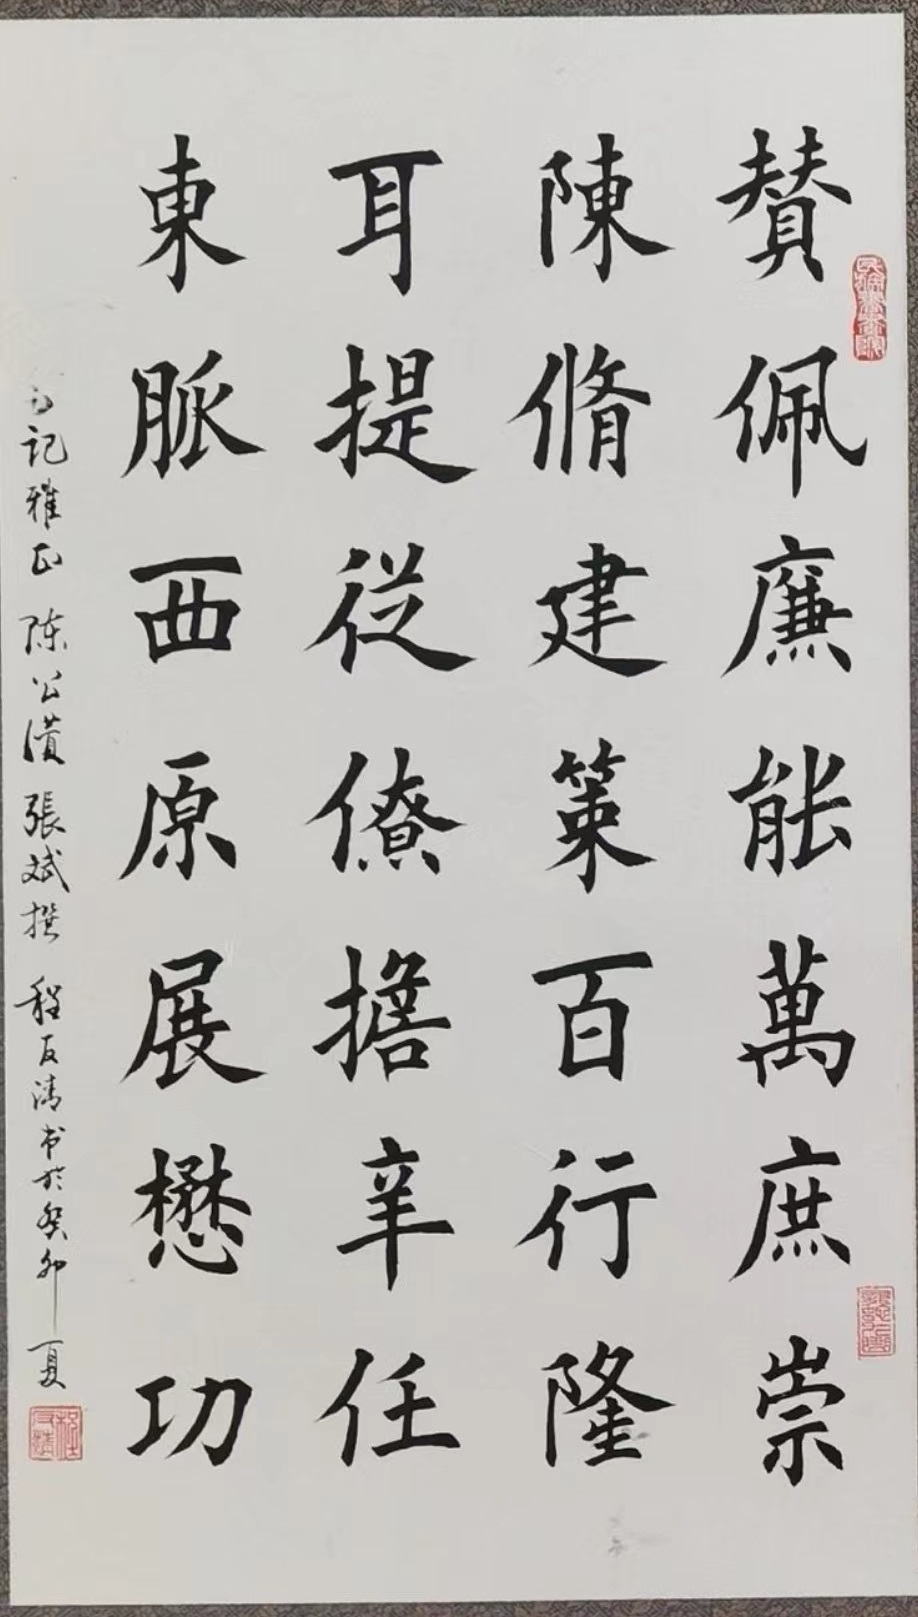 賛佩廉能萬庶崇
陳脩建策百行隆
耳提従僚擔辛任
東脈西原展懋功
記雅正 陈公瀆 張斌撰 程友清书於癸卯夏